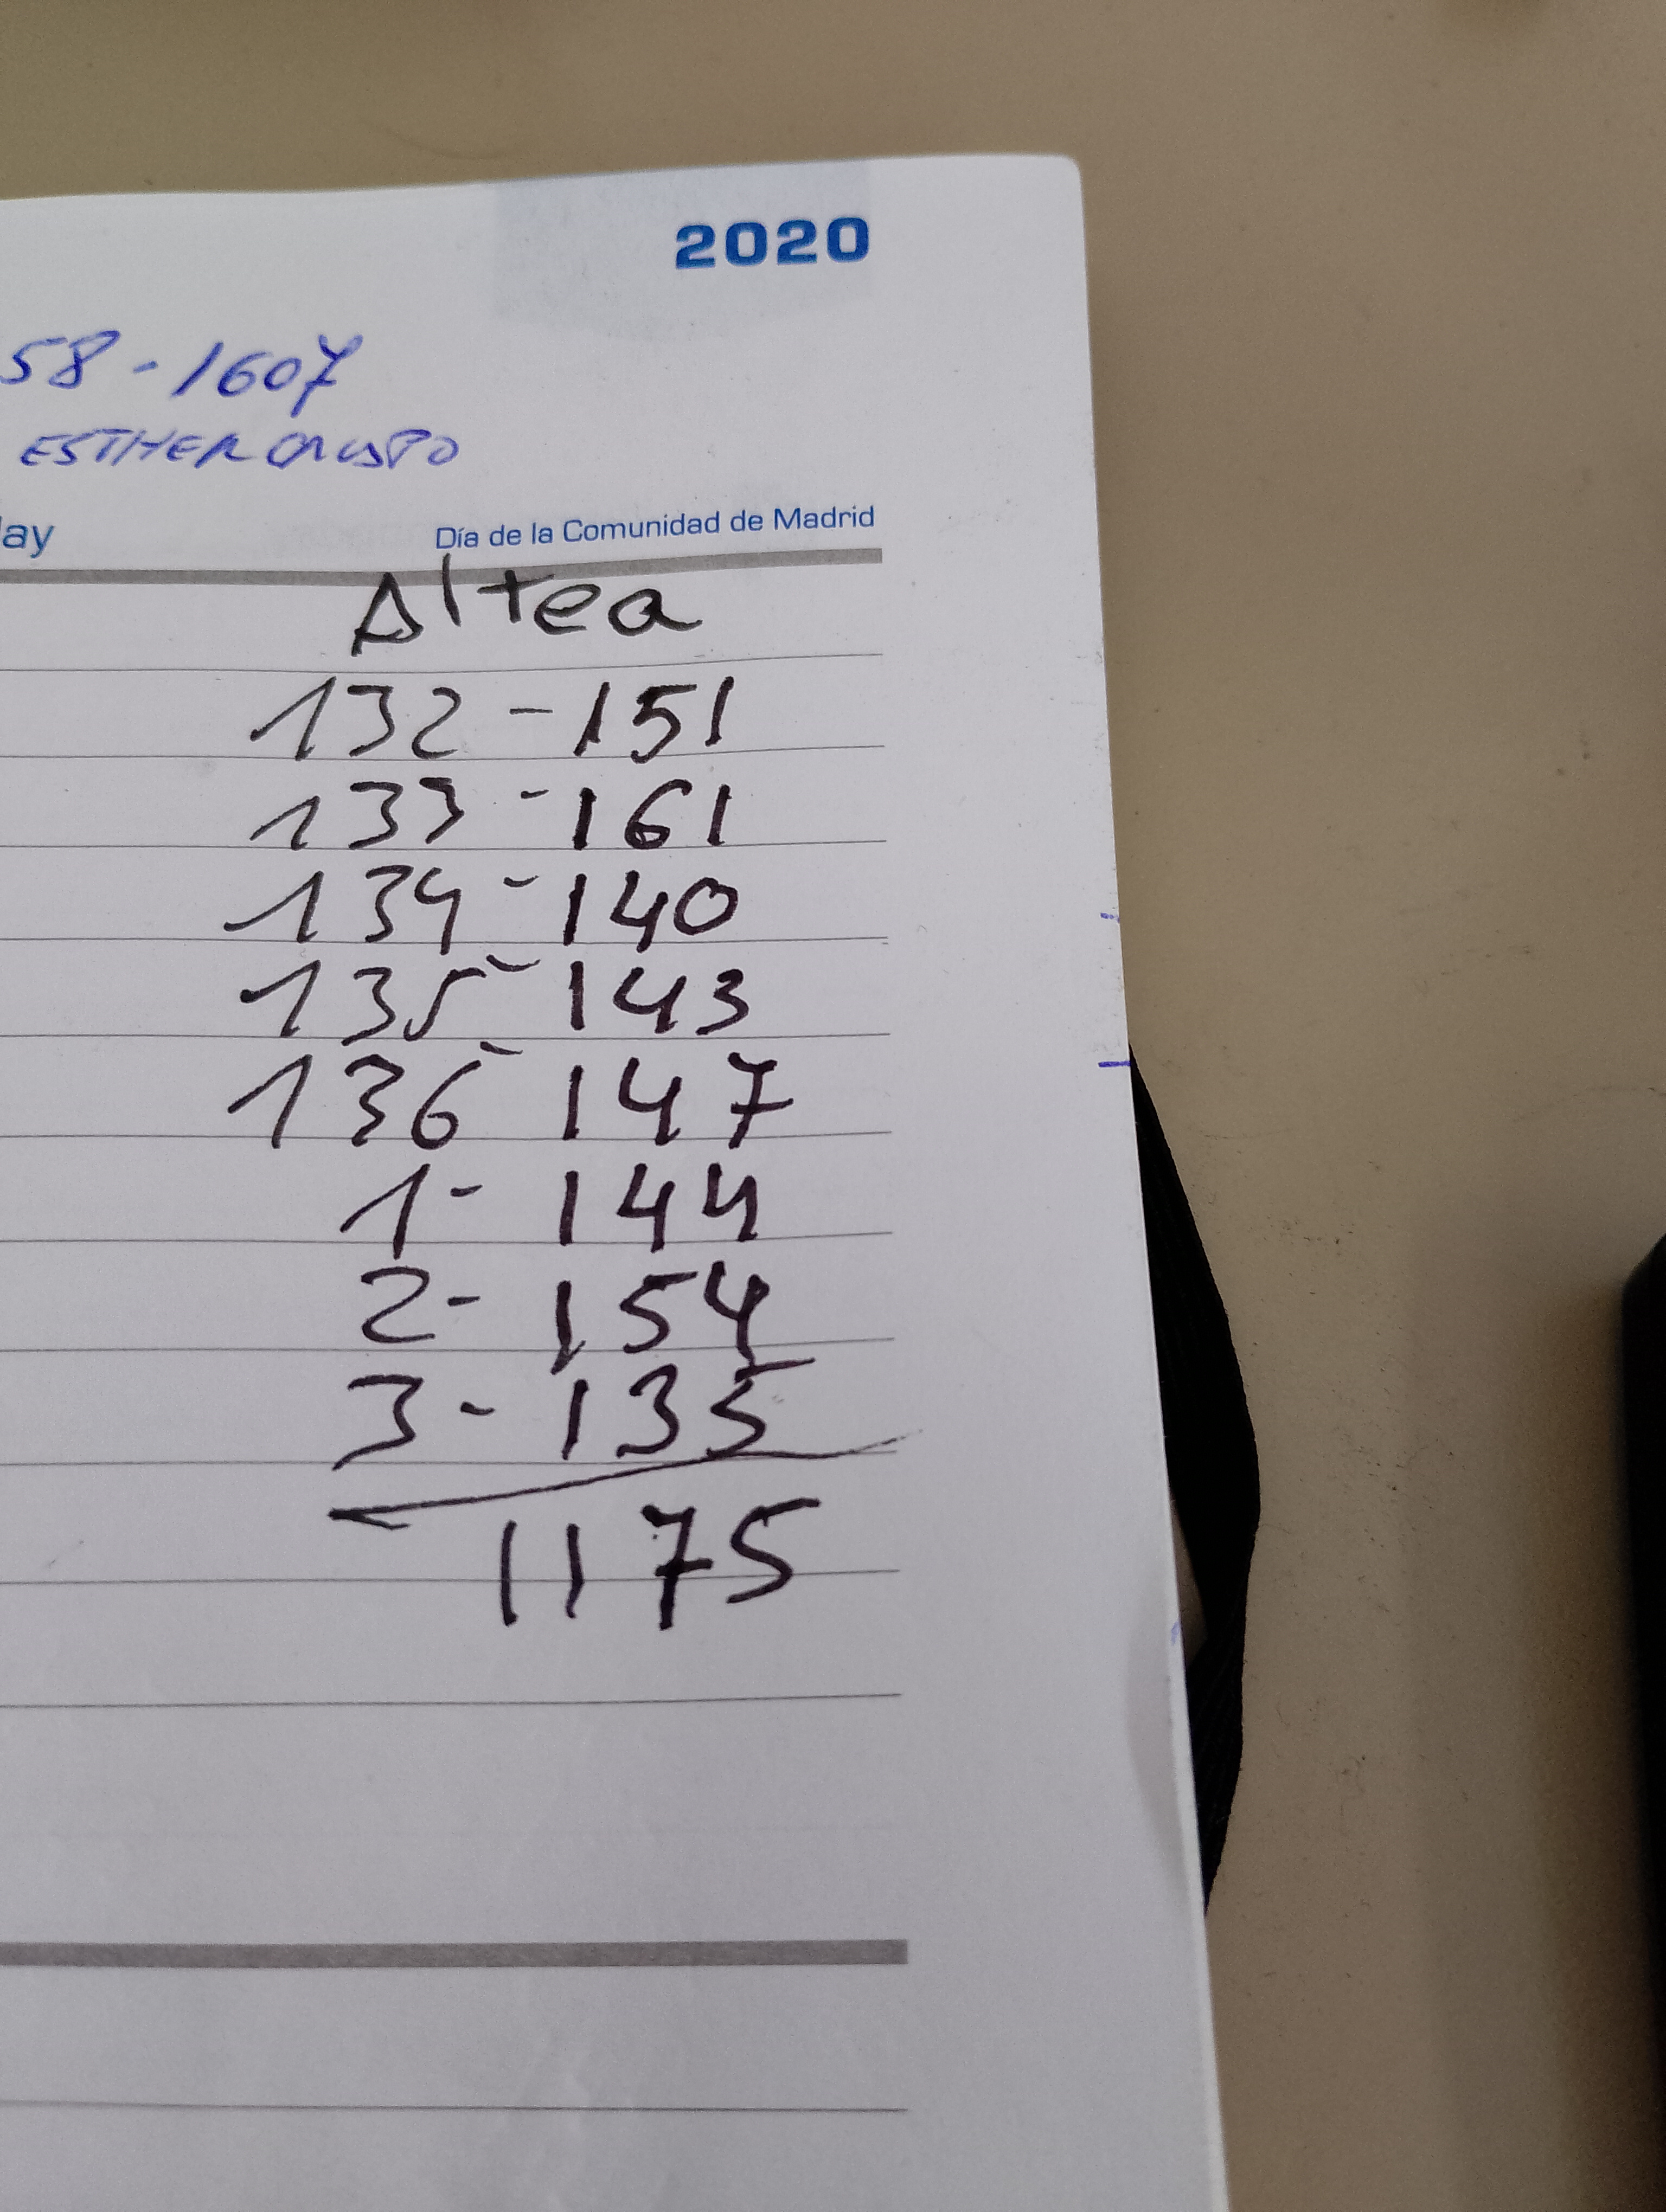 2020
58 - 1607
ESTHER CRISPO
ay
Día de la Comunidad de Madrid
Altea
132 - 151
133 - 161
134 - 140
135 - 143
136 - 147
1 - 144
2 - 154
3 - 135
1175